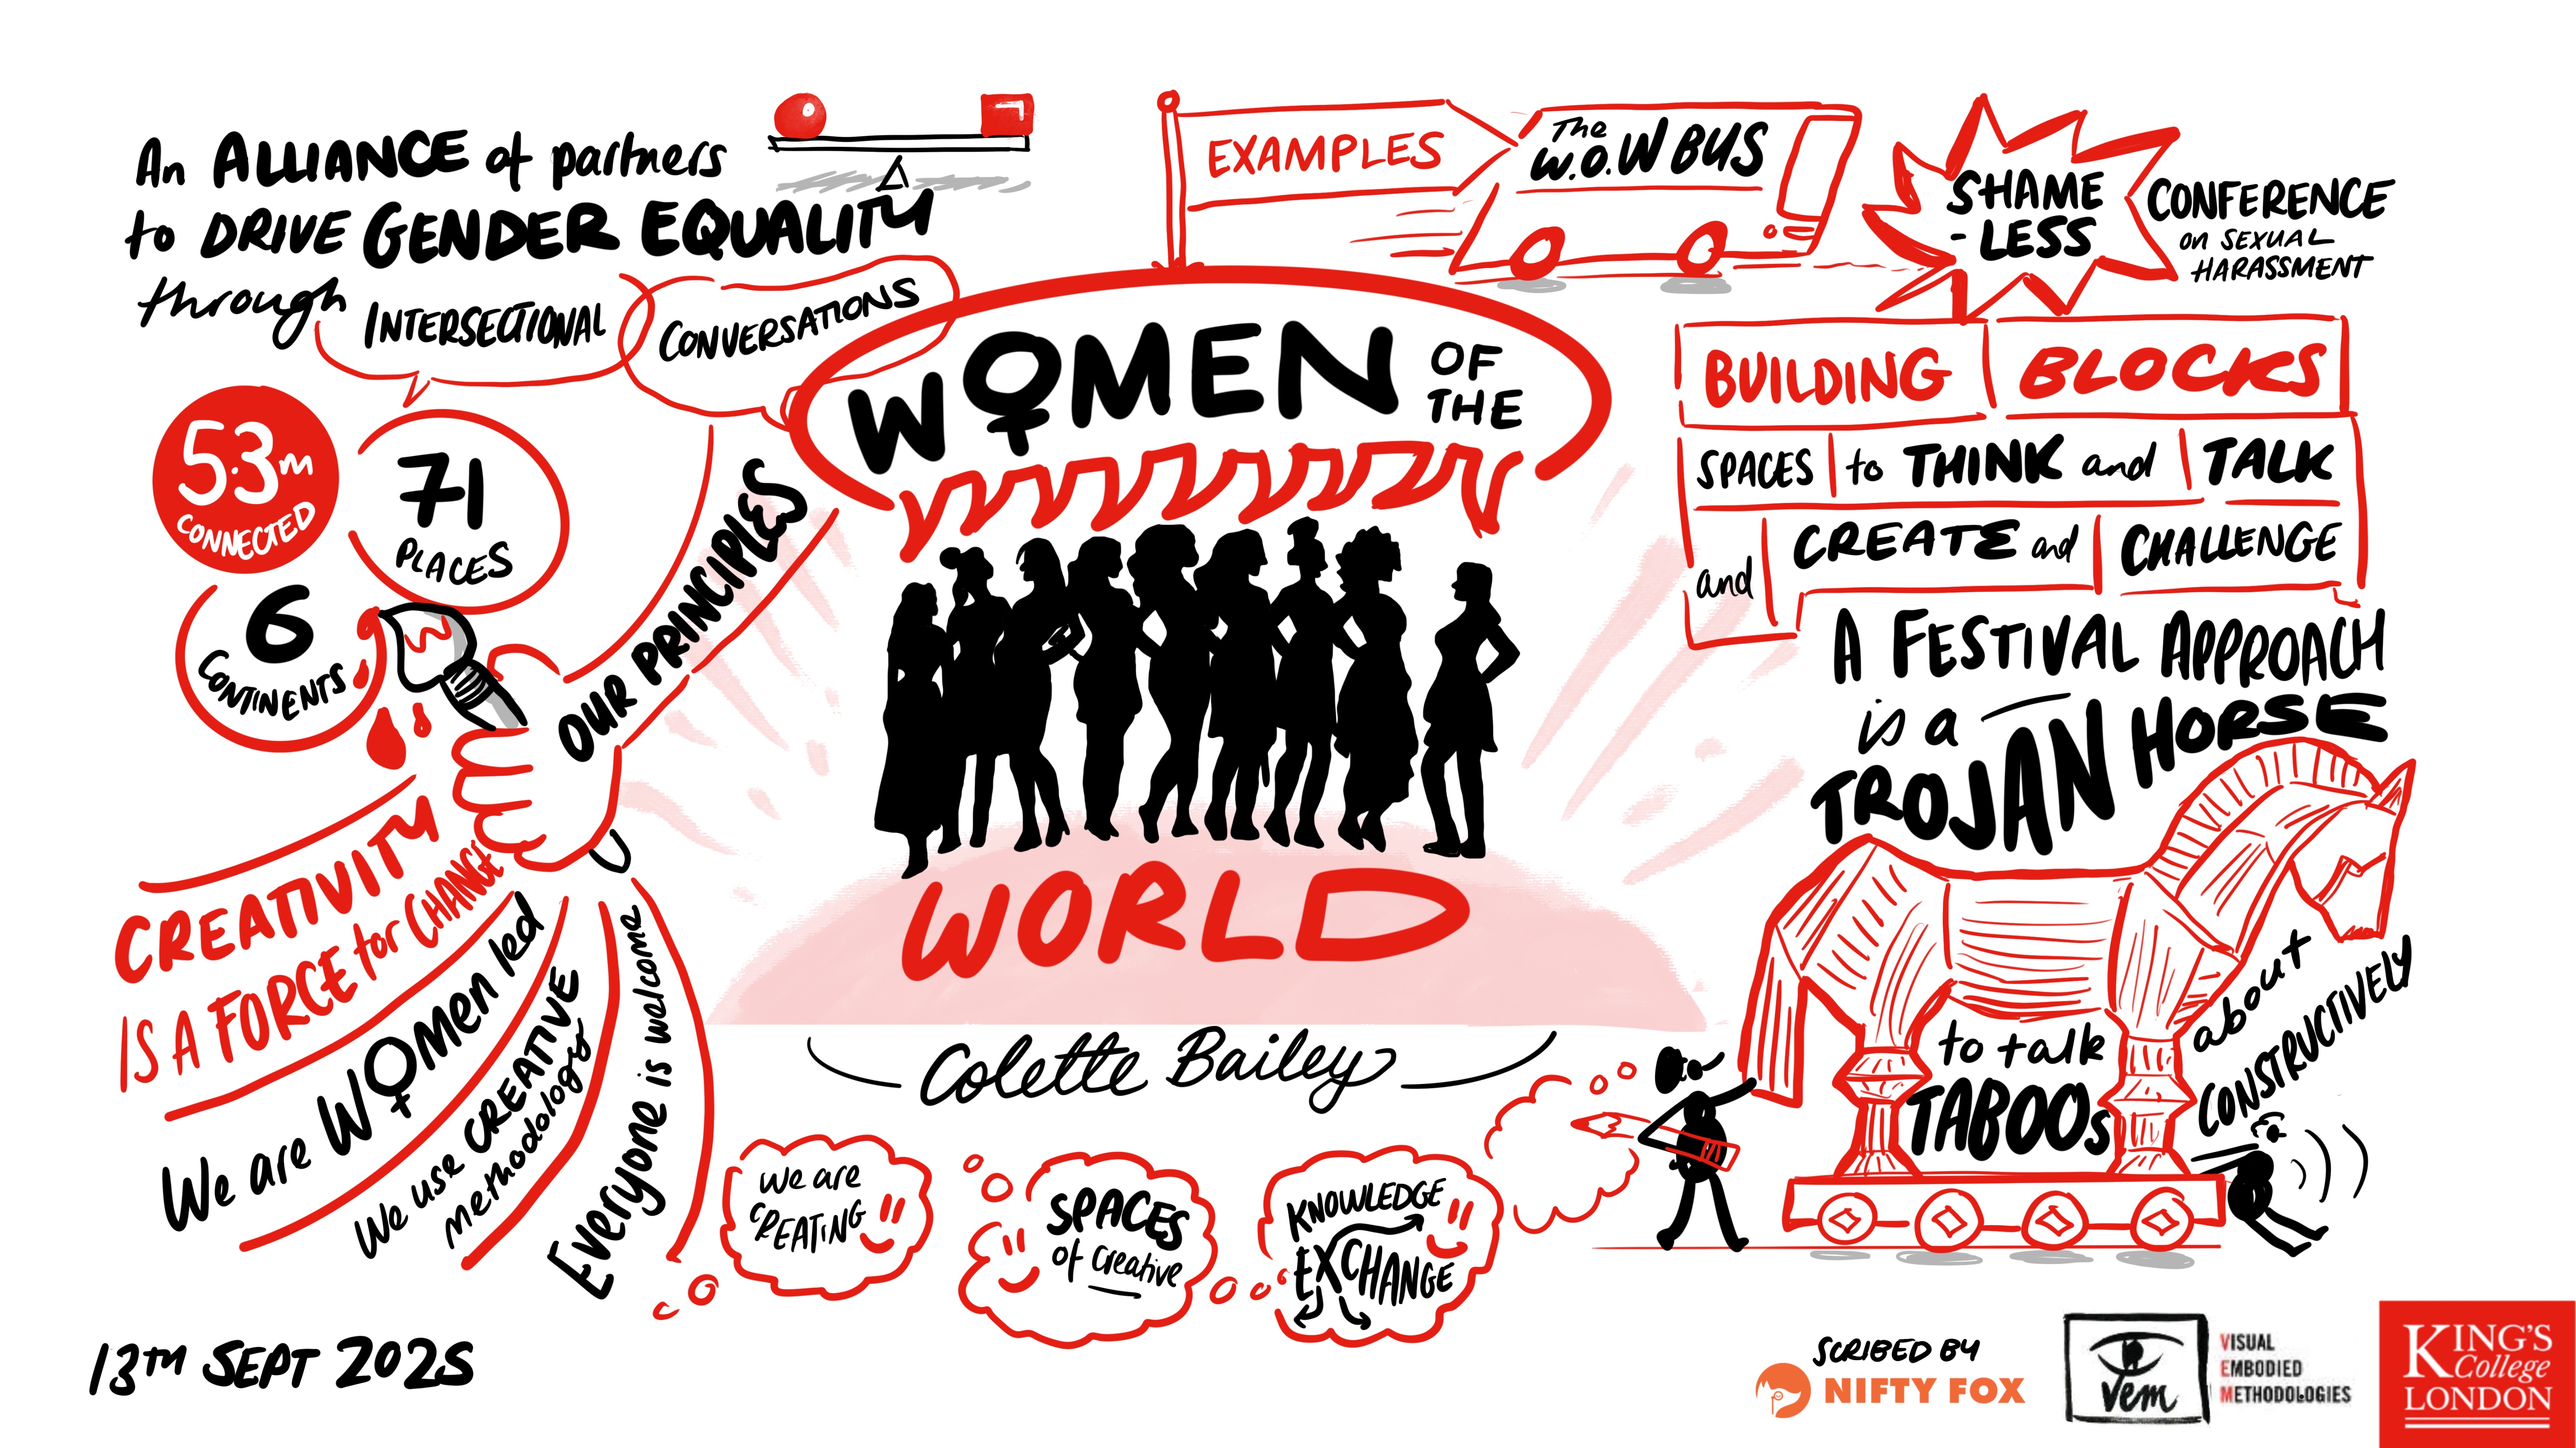 An ALLIANCE of partners
to DRIVE GENDER EQUALITY
through
INTERSECTIONAL
CONVERSATIONS
5.3m
CONNECTED
71
PLACES
6
CONTINENTS
OUR PRINCIPLES
CREATIVITY
IS A FORCE for CHANGE
We are WOMEN led
We use CREATIVE
methodology
Everyone is welcome
EXAMPLES
The
W.O.W BUS
SHAME
-LESS
CONFERENCE
ON SEXUAL
HARASSMENT
WOMEN
OF
THE
WORLD
Colette Bailey
BUILDING BLOCKS
SPACES to THINK and TALK
and CREATE and CHALLENGE
A FESTIVAL APPROACH
is a
TROJAN HORSE
to talk
about
TABOOS
CONSTRUCTIVELY
We are
CREATING
SPACES
of creative
KNOWLEDGE
EXCHANGE
13TH SEPT 2025
SCRIBED BY
NIFTY FOX
vem
VISUAL
EMBODIED
METHODOLOGIES
KING'S
College
LONDON